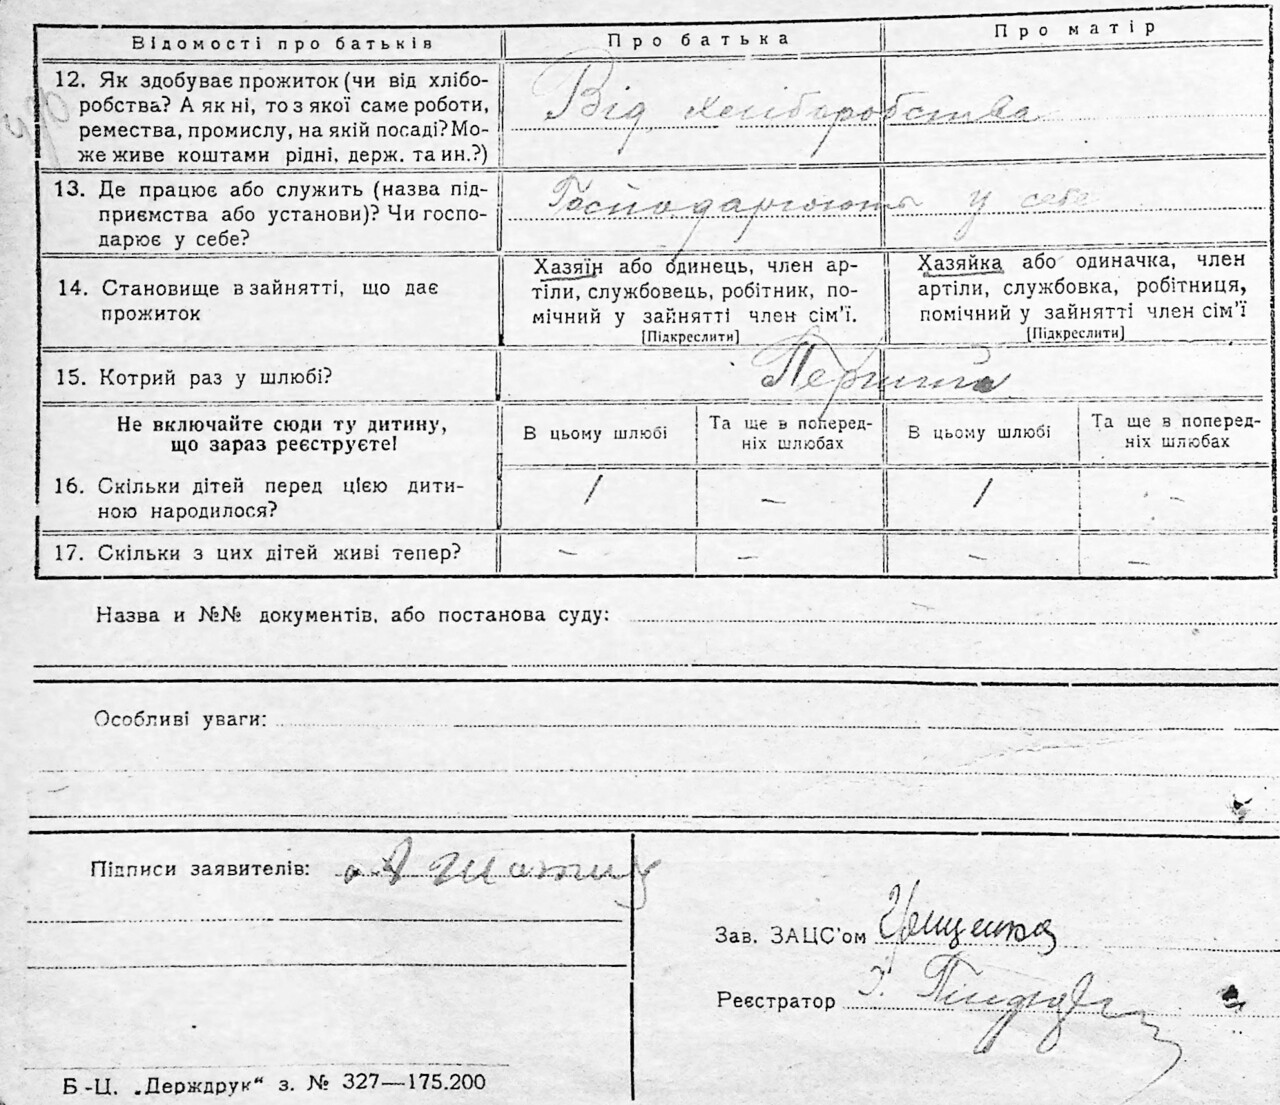 Відомості про батьків
Про батька
Про матір
12. Як здобуває прожиток (чи від хлібо-
робства? А як ні, то з якої саме роботи,
ремества, промислу, на якій посаді? Мо-
же живе коштами рідні, держ. та ин.?)
Від хліборобства
13. Де працює або служить (назва під-
приємства або установи)? Чи госпо-
дарює у себе?
Господарюють у себе
14. Становище в зайнятті, що дає
прожиток
Хазяїн або одинець, член ар-
тіли, службовець, робітник, по-
мічний у зайнятті член сім'ї.
[Підкреслити]
Хазяйка або одиначка, член
артіли, службовка, робітниця,
помічний у зайнятті член сім'ї
[Підкреслити]
15. Котрий раз у шлюбі?
Перший
Не включайте сюди ту дитину,
що зараз реєструєте!
В цьому шлюбі
Та ще в поперед-
ніх шлюбах
В цьому шлюбі
Та ще в поперед-
ніх шлюбах
16. Скільки дітей перед цією дити-
ною народилося?
1 – 1 –
17. Скільки з цих дітей живі тепер?
– – – –
Назва и №№ документів, або постанова суду:
Особливі уваги:
Підписи заявителів:
Зав. ЗАЦС'ом
Реєстратор
Б-Ц. „Держдрук“ з. № 327—175.200